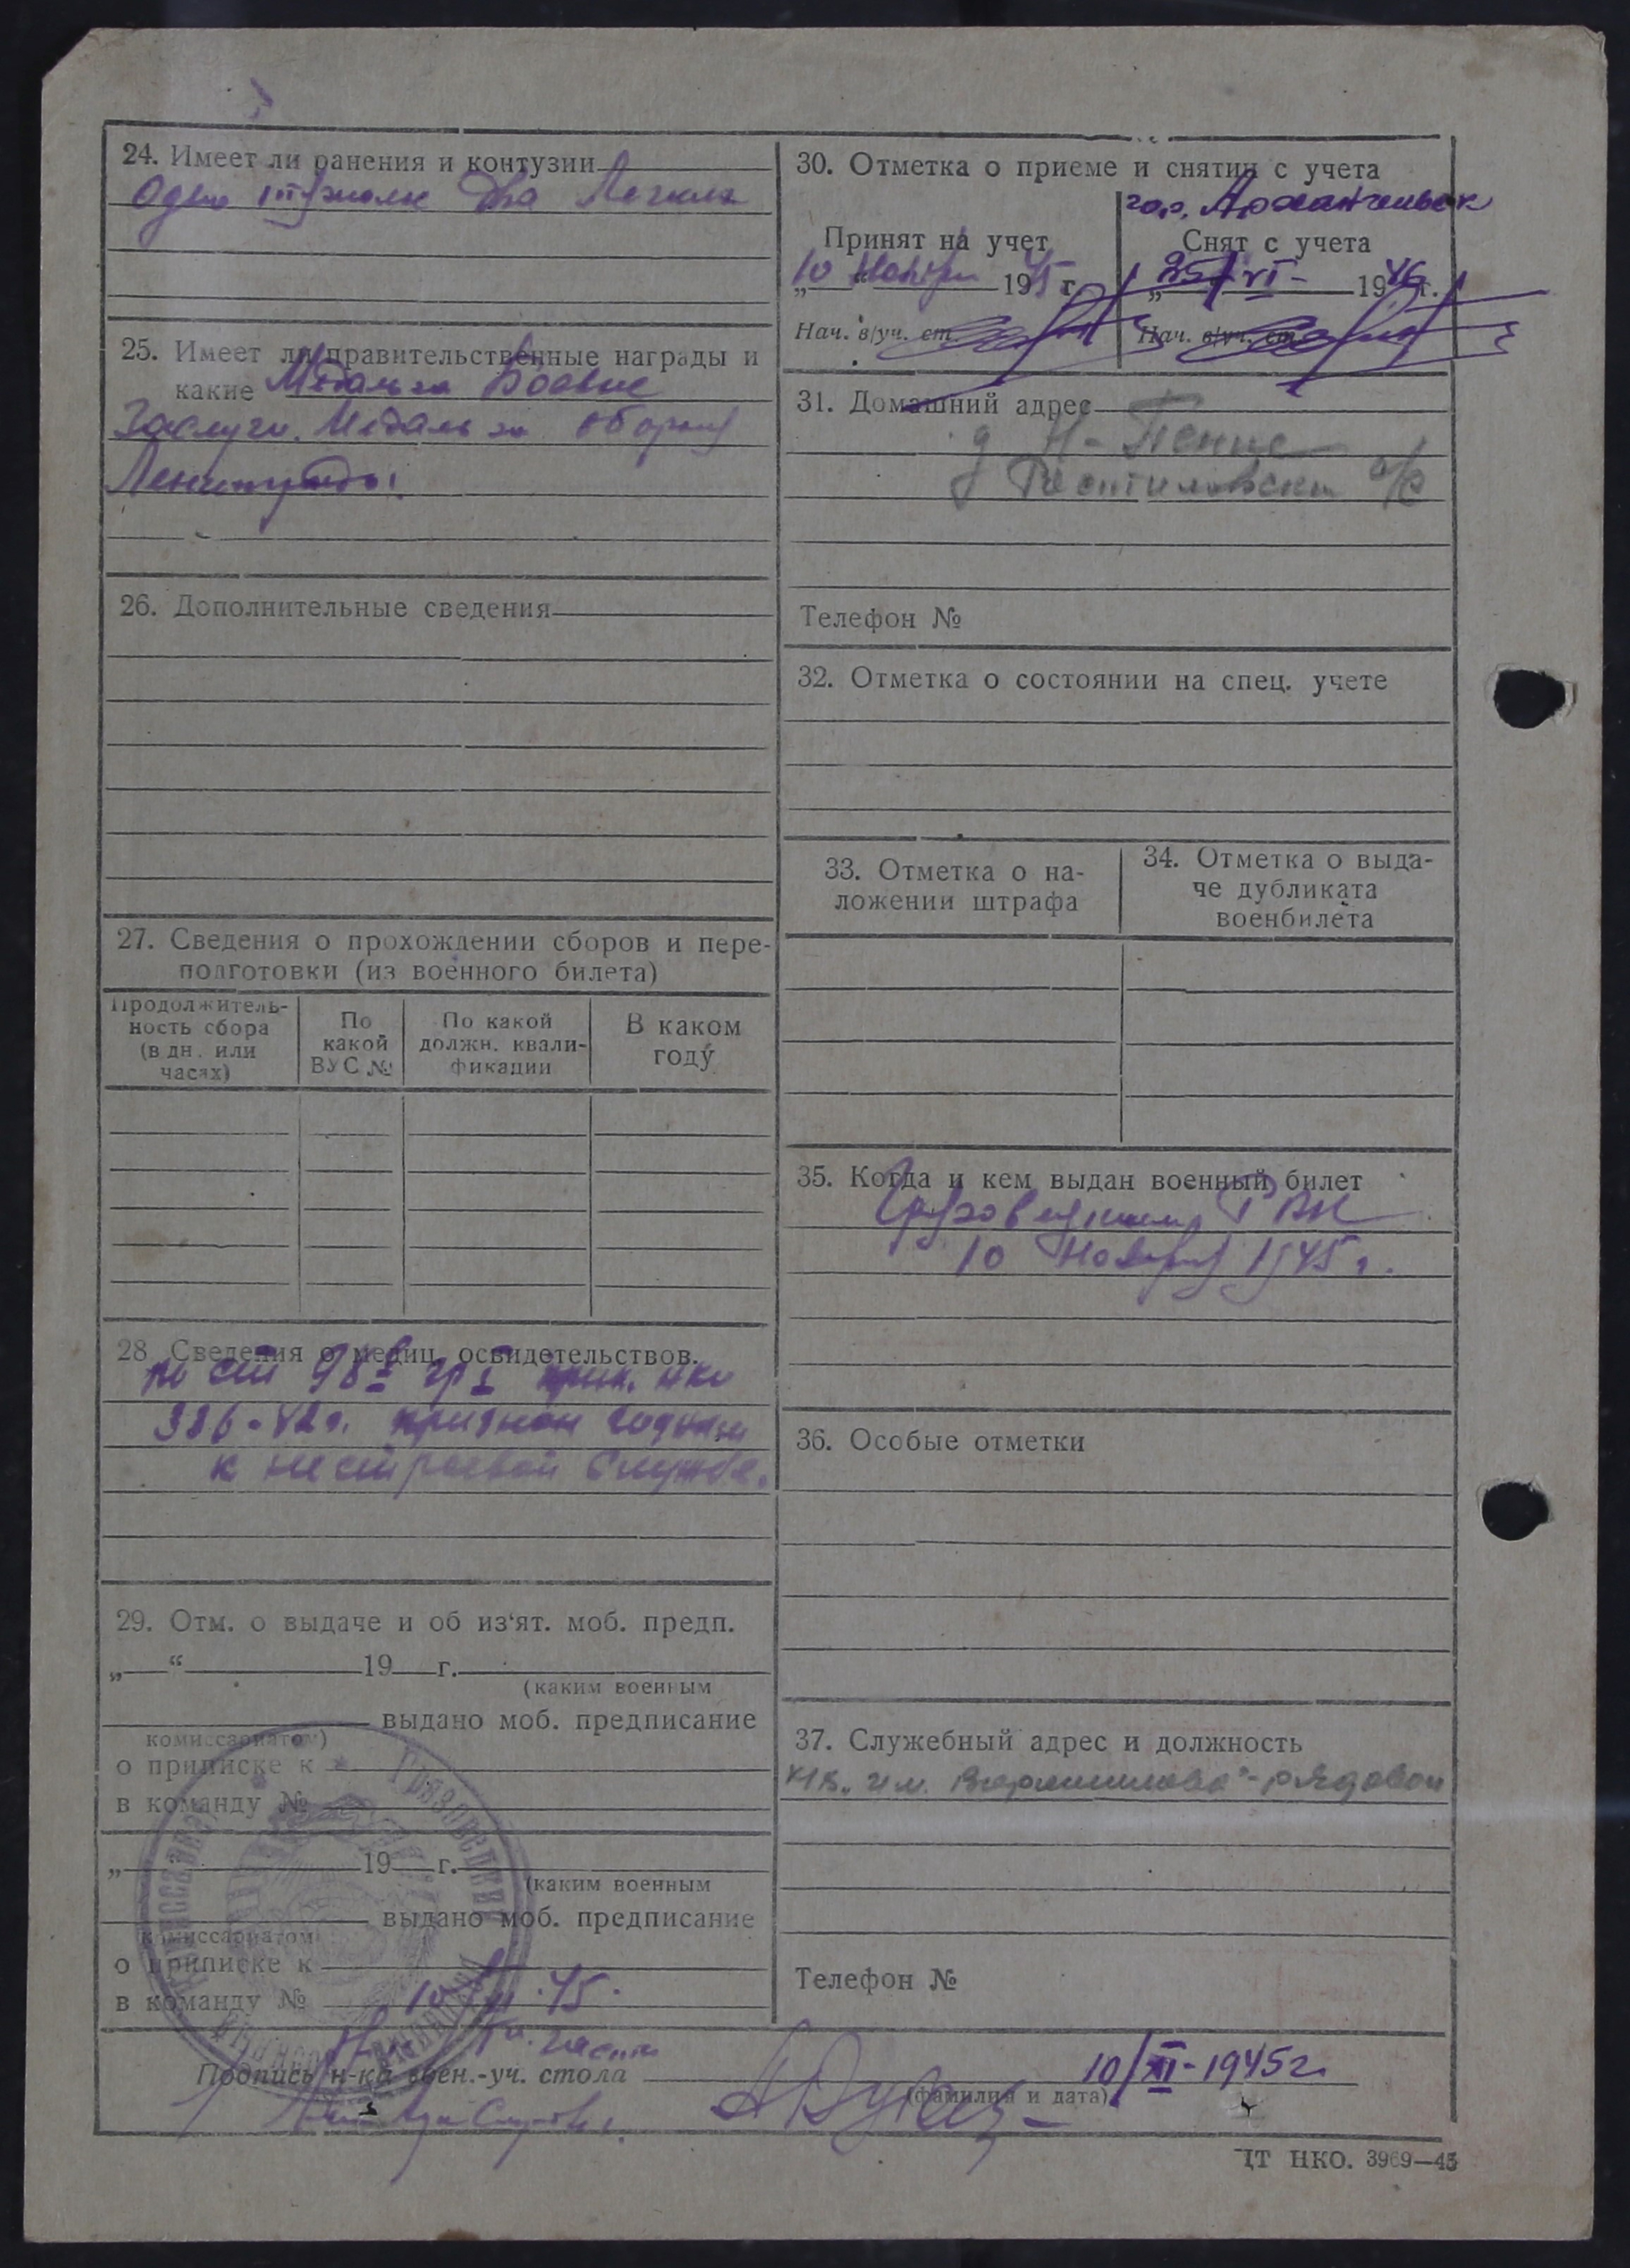 24. Имеет ли ранения и контузии
Одно тяжолое Два Легких
25. Имеет ли правительственные награды и
какие Медаль за Боевые
Заслуги. Медаль за оборону
Ленинграда.
26. Дополнительные сведения
27. Сведения о прохождении сборов и пере-
подготовки (из военного билета)
Продолжитель-
ность сбора
(в дн. или
часах)
По
какой
ВУС №
По какой
должн. квали-
фикации
В каком
году
28 Сведения о медиц. освидетельствов.
по ст 98 гр I прик. нко
336-42г. признан годным
к нестроевой службе.
29. Отм. о выдаче и об из‘ят. моб. предп.
„ “ 19 г.
(каким военным
выдано моб. предписание
комиссариатом)
о приписке к
в команду №
„ “ 19 г.
(каким военным
выдано моб. предписание
комиссариатом
о приписке к
в команду №
10/XI.45.
30. Отметка о приеме и снятии с учета
гор. Архангельск
Принят на учет
10 Ноября 1945 г.
Нач. в/уч. ст.
Снят с учета
„25/VI- 1946 г.
Нач. в/уч. ст.
31. Домашний адрес
д Н-
с/с
Телефон №
32. Отметка о состоянии на спец. учете
33. Отметка о на-
ложении штрафа
34. Отметка о выда-
че дубликата
военбилета
35. Когда и кем выдан военный билет
Грязовецким РВК
10 Ноября 1945 г.
36. Особые отметки
37. Служебный адрес и должность
им. Ворошилова"-рядовой
Телефон №
части
Подпись н-ка воен.-уч. стола
10/XI-1945г
(фамилия и дата)
ЦТ НКО. 3969—45